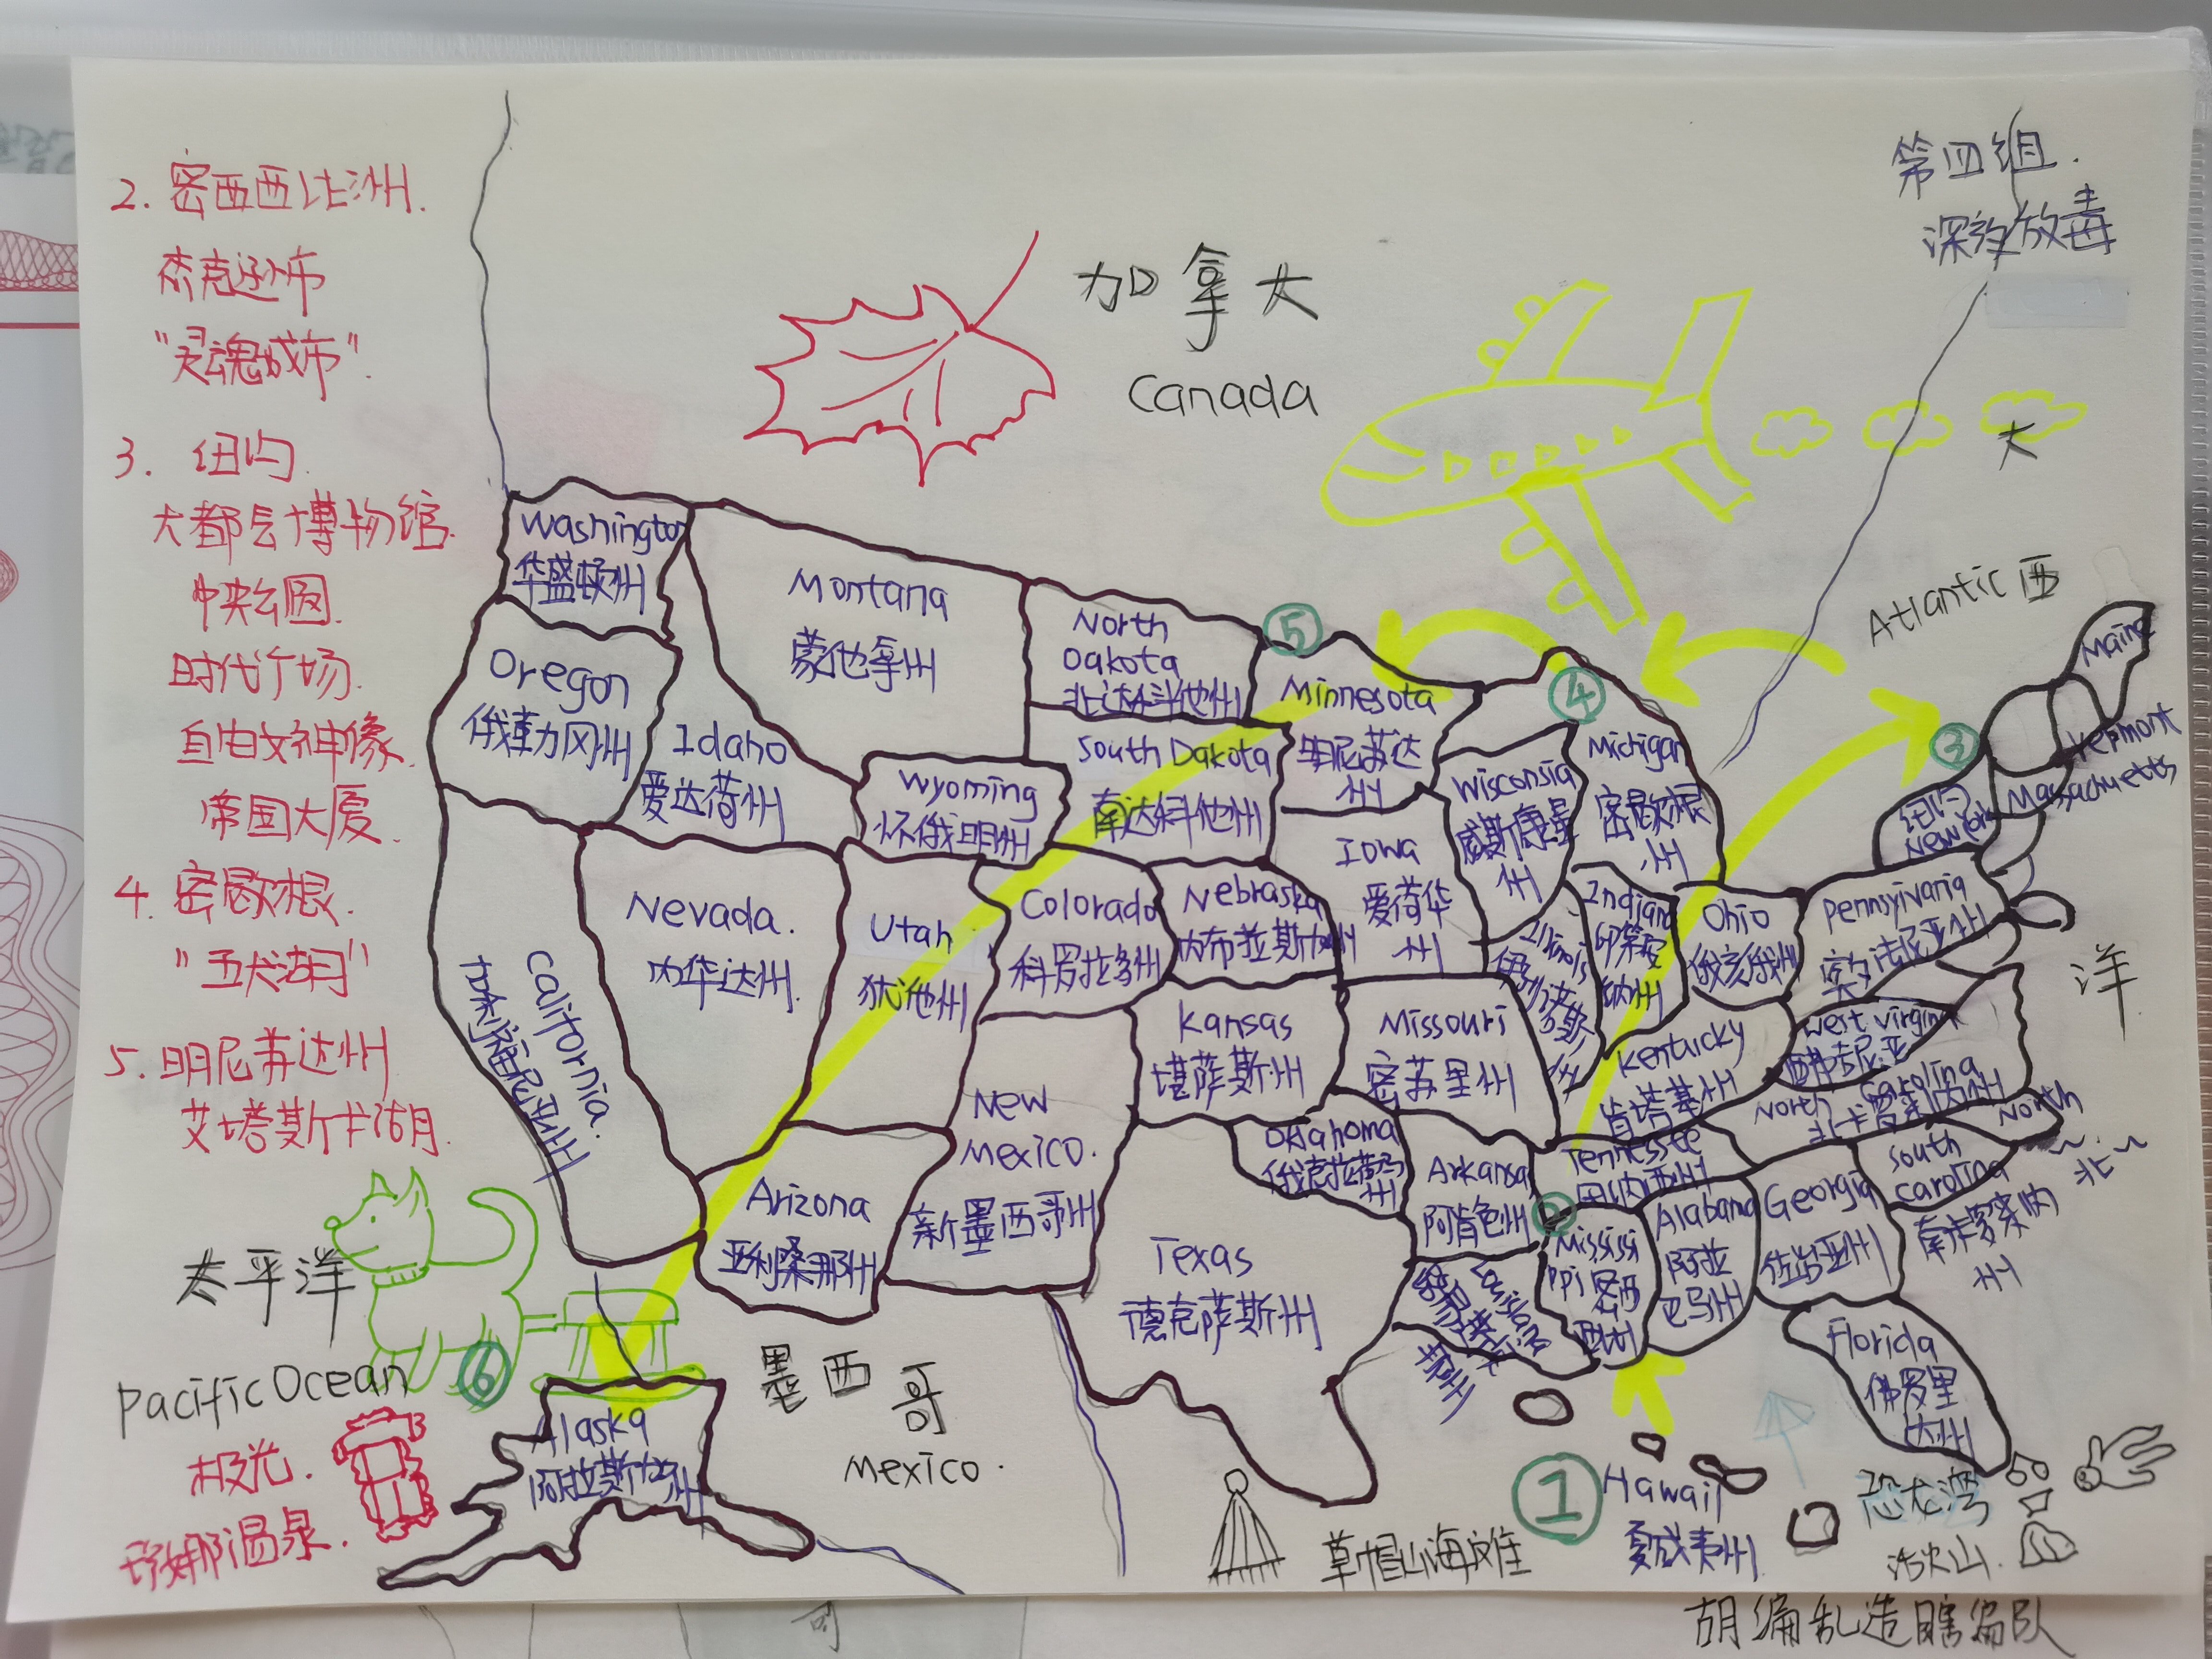 第四组.
深夜放毒
2. 密西西比州.
杰克逊市
"灵魂城市".
3. 纽约.
大都会博物馆.
中央公园.
时代广场.
自由女神像.
帝国大厦.
4. 密歇根.
"五大湖"
5. 明尼苏达州
艾塔斯卡湖.
加拿大
Canada
大
西
洋
Atlantic
北
North
太平洋
Pacific Ocean
极光.
温泉.
墨西哥
Mexico.
Washington
华盛顿州
Oregon
俄勒冈州
Idaho
爱达荷州
Montana
蒙他拿州
North
Dakota
北达科他州
South Dakota
南达科他州
⑤
Minnesota
明尼苏达
州
④
Michigan
密歇根
州
Wisconsia
威斯康星
州
Wyoming
怀俄明州
California.
加利福尼亚州
Nevada.
内华达州.
Utah
犹他州
Colorado
科罗拉多州
Nebraska
内布拉斯加州
Iowa
爱荷华
州
Illinois
伊利诺斯
州
Indiana
印第安
纳州
Ohio
俄亥俄州
③
纽约
New York
Maine
Vepmont
Massachuetts
Pennsylvania
宾夕法尼亚州
West virginia
Kentucky
肯塔基州
North
Carolina
北卡罗来纳州
South
carolina
南卡罗来纳
州
Tennesste
田纳西州
Kansas
堪萨斯州
Missouri
密苏里州
Arizona
亚利桑那州
New
Mexico.
新墨西哥州
Oklahoma
俄克拉荷马
州
Arkansa
阿肯色州
Texas
德克萨斯州
Louisiana
②
Mississi
ppi 密西
西比州
Alabama
阿拉
巴马州
Georgia
佐治亚州
Florida
佛罗里
达州
⑥
Alaska
阿拉斯加州
①
Hawaii
夏威夷州
草帽山海滩
恐龙湾
活火山.
胡编乱造瞎编队
可